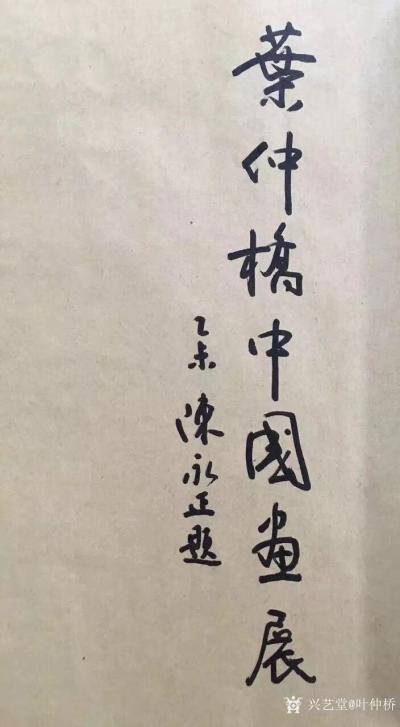 葉仲橋中國畫展
乙未 陳永正題
兴艺堂@叶仲桥